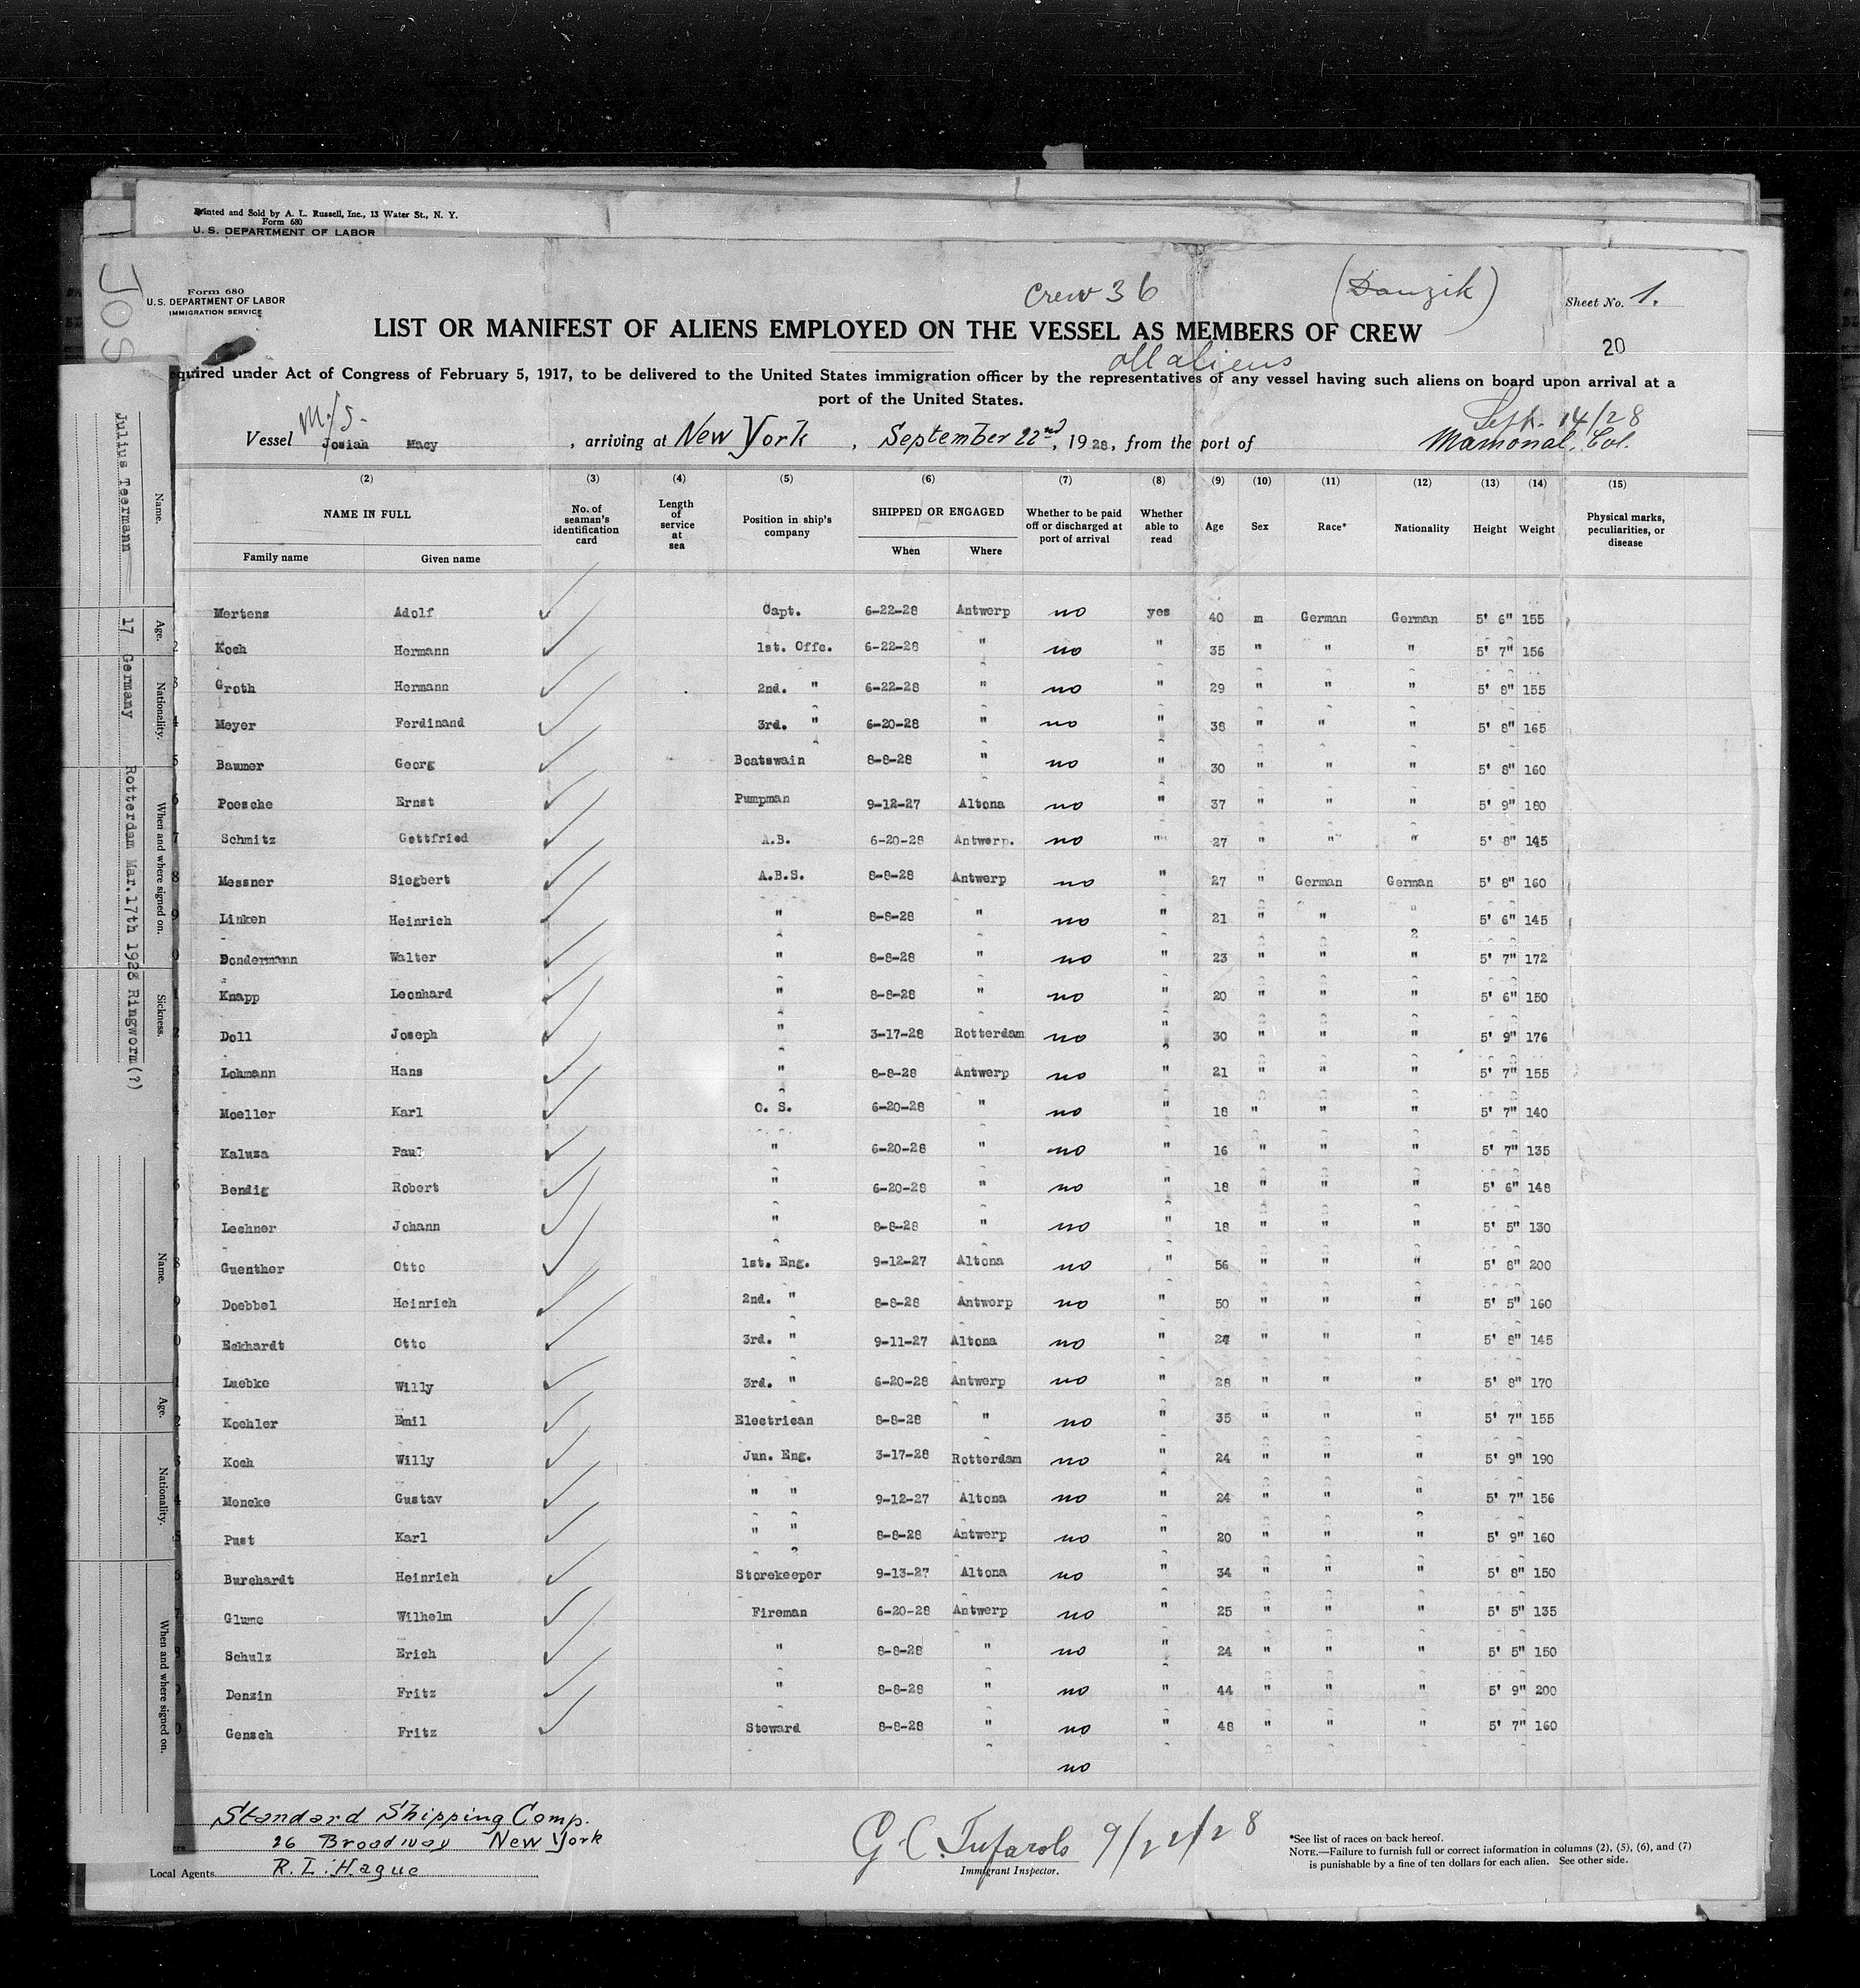 Printed and Sold by A. L. Russell, Inc., 13 Water St., N. Y.
Form 680
U. S. DEPARTMENT OF LABOR
JOS
Form 680
U. S. DEPARTMENT OF LABOR
IMMIGRATION SERVICE
Crew 36
(Danzik)
Sheet No. 1.
LIST OR MANIFEST OF ALIENS EMPLOYED ON THE VESSEL AS MEMBERS OF CREW
20
all aliens
quired under Act of Congress of February 5, 1917, to be delivered to the United States immigration officer by the representatives of any vessel having such aliens on board upon arrival at a
port of the United States.
M/S.
Sept. 14/28
Vessel Josiah Macy, arriving at New York, September 22nd, 1928, from the port of Mamonal, Col.
(2) (3) (4) (5) (6) (7) (8) (9) (10) (11) (12) (13) (14) (15)
NAME IN FULL No. of seaman's identification card Length of service at sea Position in ship's company SHIPPED OR ENGAGED Whether to be paid off or discharged at port of arrival Whether able to read Age Sex Race* Nationality Height Weight Physical marks, peculiarities, or disease
Family name Given name When Where
Mertens Adolf Capt. 6-22-28 Antwerp no yes 40 m German German 5' 6" 155
2 Koch Hermann 1st. Offc. 6-22-28 " no " 35 " " " 5' 7" 156
3 Groth Hermann 2nd. " 6-22-28 " no " 29 " " " 5' 8" 155
4 Meyer Ferdinand 3rd. " 6-20-28 " no " 38 " " " 5' 8" 165
5 Baumer Georg Boatswain 8-8-28 " no " 30 " " " 5' 8" 160
6 Poesche Ernst Pumpman 9-12-27 Altona no " 37 " " " 5' 9" 180
7 Schmitz Gottfried A.B. 6-20-28 Antwerp. no " 27 " " " 5' 8" 145
8 Messner Siegbert A.B.S. 8-8-28 Antwerp no " 27 " German German 5' 8" 160
9 Linken Heinrich " 8-8-28 " no " 21 " " " 5' 6" 145
0 Dondermann Walter " 8-8-28 " no " 23 " " " 5' 7" 172
1 Knapp Leonhard " 8-8-28 " no " 20 " " " 5' 6" 150
2 Doll Joseph " 3-17-28 Rotterdam no " 30 " " " 5' 9" 176
3 Lohmann Hans " 8-8-28 Antwerp no " 21 " " " 5' 7" 155
Moeller Karl O. S. 6-20-28 " no " 18 " " " 5' 7" 140
5 Kaluza Paul " 6-20-28 " no " 16 " " " 5' 7" 135
6 Bendig Robert " 6-20-28 " no " 18 " " " 5' 6" 148
Lechner Johann " 8-8-28 " no " 18 " " " 5' 5" 130
8 Guenther Otto 1st. Eng. 9-12-27 Altona no " 56 " " " 5' 8" 200
9 Doebbel Heinrich 2nd. " 8-8-28 Antwerp no " 50 " " " 5' 5" 160
0 Eckhardt Otto 3rd. " 9-11-27 Altona no " 24 " " " 5' 8" 145
1 Luebke Willy 3rd. " 6-20-28 Antwerp no " 28 " " " 5' 8" 170
2 Koehler Emil Electrican 8-8-28 " no " 35 " " " 5' 7" 155
3 Koch Willy Jun. Eng. 3-17-28 Rotterdam no " 24 " " " 5' 9" 190
4 Moncke Gustav " " 9-12-27 Altona no " 24 " " " 5' 7" 156
5 Pust Karl " " 8-8-28 Antwerp no " 20 " " " 5' 9" 160
6 Burchardt Heinrich Storekeeper 9-13-27 Altona no " 34 " " " 5' 8" 150
7 Glume Wilhelm Fireman 6-20-28 Antwerp no " 25 " " " 5' 5" 135
8 Schulz Erich " 8-8-28 " no " 24 " " " 5' 5" 150
9 Denzin Fritz " 8-8-28 " no " 44 " " " 5' 9" 200
0 Gensch Fritz Steward 8-8-28 " no " 48 " " " 5' 7" 160
no
Standard Shipping Comp.
26 Broadway New York
Local Agents R. L. Hague
9/22/28
Immigrant Inspector.
*See list of races on back hereof.
NOTE.—Failure to furnish full or correct information in columns (2), (5), (6), and (7)
is punishable by a fine of ten dollars for each alien. See other side.
Name. Age. Nationality. When and where signed on. Sickness.
Julius Teermann 17 Germany Rotterdam Mar.17th 1928 Ringworm(?)
Name. Age. Nationality. When and where signed on.